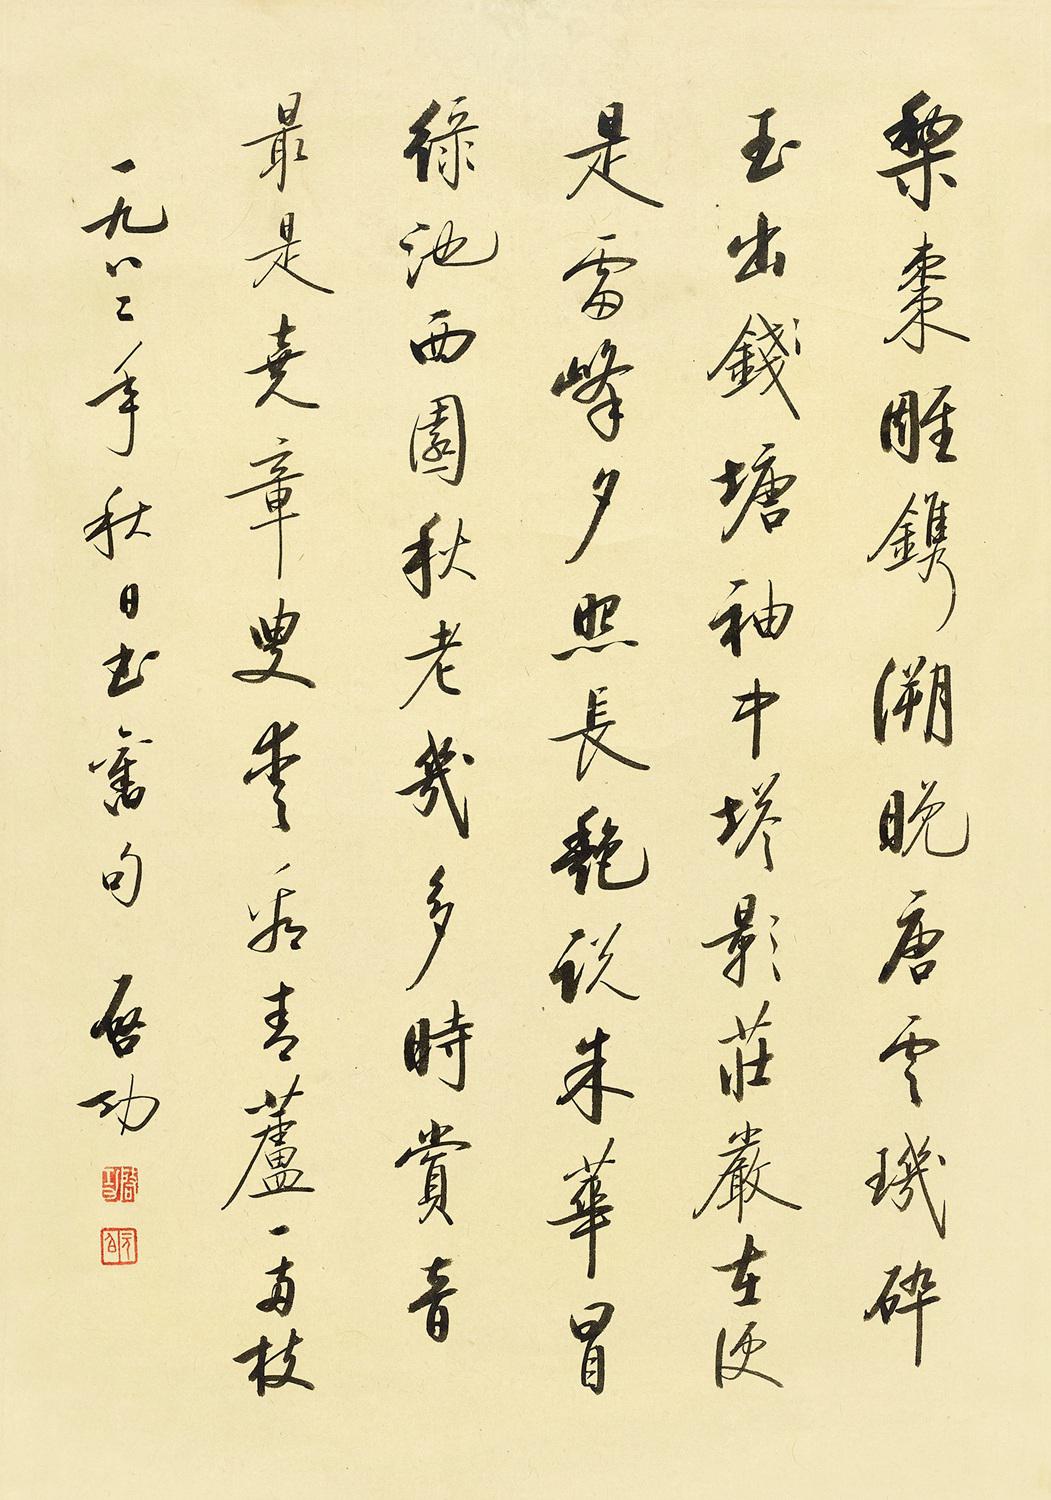 梨棗雕鐫溯晚唐零璣碎
玉出錢塘袖中塔影莊嚴在便
是雷峰夕照長艷說朱華冒
綠池西園秋老幾多時賞音
最是堯章叟愛看青蘆一兩枝
一九八二年秋日書舊句 啟功
啟功
元白